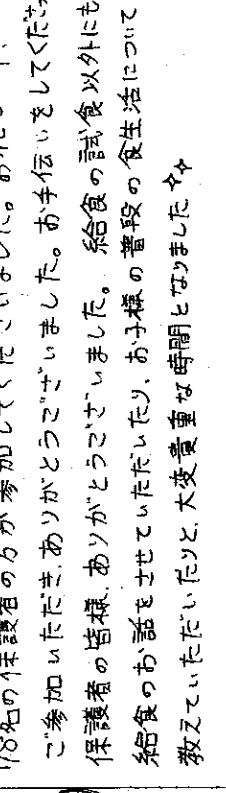 18名の保護者の方が参加してくださいました。お忙しい中、
ご参加いただき、ありがとうございました。お手伝いをしてくださった
保護者の皆様、ありがとうございました。給食の試食以外にも
給食のお話をさせていただいたり、お子様の普段の食生活について
教えていただいたりと、大変貴重な時間となりました